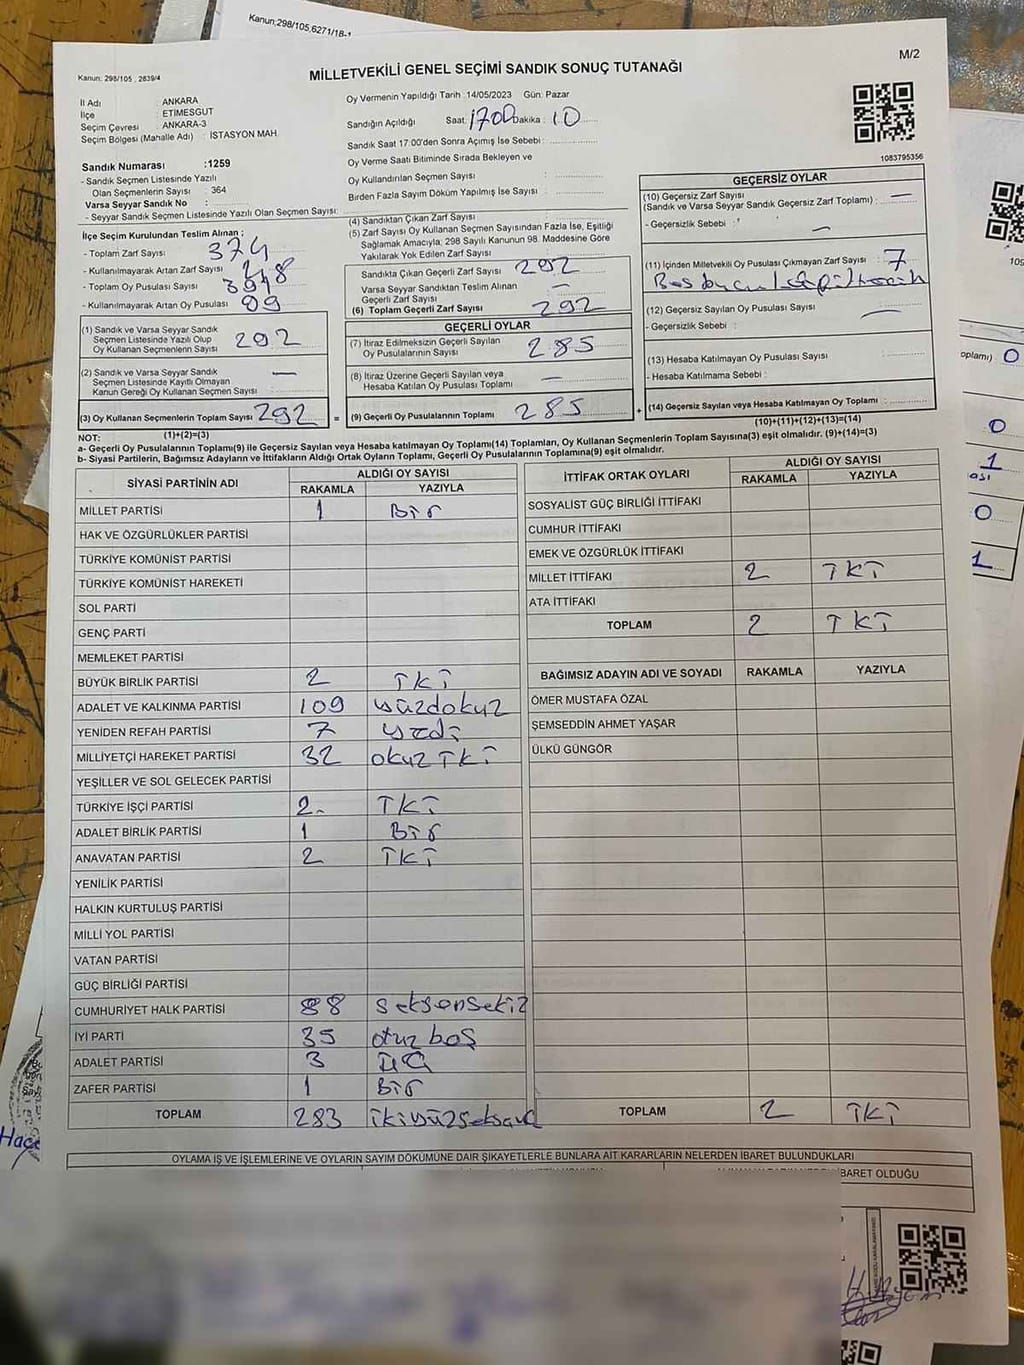 Kanun;298/105,6271/18-1
M/2
Kanun: 298/105 ; 2839/4
MİLLETVEKİLİ GENEL SEÇİMİ SANDIK SONUÇ TUTANAĞI
İl Adı : ANKARA
İlçe : ETİMESGUT
Seçim Çevresi : ANKARA-3
Seçim Bölgesi (Mahalle Adı) : İSTASYON MAH.
Sandık Numarası :1259
- Sandık Seçmen Listesinde Yazılı
Olan Seçmenlerin Sayısı : 364
Varsa Seyyar Sandık No :
- Seyyar Sandık Seçmen Listesinde Yazılı Olan Seçmen Sayısı:
Oy Vermenin Yapıldığı Tarih :14/05/2023 Gün: Pazar
Sandığın Açıldığı Saat: 1700 Dakika : 10
Sandık Saat 17:00'den Sonra Açımış İse Sebebi :
Oy Verme Saati Bitiminde Sırada Bekleyen ve
Oy Kullandırılan Seçmen Sayısı :
Birden Fazla Sayım Döküm Yapılmış İse Sayısı :
1083795356
İlçe Seçim Kurulundan Teslim Alınan ;
- Toplam Zarf Sayısı : 374
- Kullanılmayarak Artan Zarf Sayısı :
- Toplam Oy Pusulası Sayısı :
- Kullanılmayarak Artan Oy Pusulası :
(1) Sandık ve Varsa Seyyar Sandık
Seçmen Listesinde Yazılı Olup
Oy Kullanan Seçmenlerin Sayısı : 292
(2) Sandık ve Varsa Seyyar Sandık
Seçmen Listesinde Kayıtlı Olmayan
Kanun Gereği Oy Kullanan Seçmen Sayısı : —
(3) Oy Kullanan Seçmenlerin Toplam Sayısı : 292 =
(1)+(2)=(3)
(4) Sandıktan Çıkan Zarf Sayısı :
(5) Zarf Sayısı Oy Kullanan Seçmen Sayısından Fazla İse, Eşitliği
Sağlamak Amacıyla; 298 Sayılı Kanunun 98. Maddesine Göre
Yakılarak Yok Edilen Zarf Sayısı :
Sandıkta Çıkan Geçerli Zarf Sayısı : 292
Varsa Seyyar Sandıktan Teslim Alınan
Geçerli Zarf Sayısı : —
(6) Toplam Geçerli Zarf Sayısı : 292
GEÇERLİ OYLAR
(7) İtiraz Edilmeksizin Geçerli Sayılan
Oy Pusulalarının Sayısı : 285
(8) İtiraz Üzerine Geçerli Sayılan veya
Hesaba Katılan Oy Pusulası Toplamı : —
(9) Geçerli Oy Pusulalarının Toplamı : 285 +
GEÇERSİZ OYLAR
(10) Geçersiz Zarf Sayısı
(Sandık ve Varsa Seyyar Sandık Geçersiz Zarf Toplamı) : —
- Geçersizlik Sebebi : —
(11) İçinden Milletvekili Oy Pusulası Çıkmayan Zarf Sayısı : 7
(12) Geçersiz Sayılan Oy Pusulası Sayısı : —
- Geçersizlik Sebebi :
(13) Hesaba Katılmayan Oy Pusulası Sayısı :
- Hesaba Katılmama Sebebi :
(14) Geçersiz Sayılan veya Hesaba Katılmayan Oy Toplamı :
(10)+(11)+(12)+(13)=(14)
NOT:
a- Geçerli Oy Pusulalarının Toplamı(9) ile Geçersiz Sayılan veya Hesaba katılmayan Oy Toplamı(14) Toplamları, Oy Kullanan Seçmenlerin Toplam Sayısına(3) eşit olmalıdır. (9)+(14)=(3)
b- Siyasi Partilerin, Bağımsız Adayların ve İttifakların Aldığı Ortak Oyların Toplamı, Geçerli Oy Pusulalarının Toplamına(9) eşit olmalıdır.
SİYASİ PARTİNİN ADI ALDIĞI OY SAYISI
RAKAMLA YAZIYLA
MİLLET PARTİSİ 1 Bir
HAK VE ÖZGÜRLÜKLER PARTİSİ
TÜRKİYE KOMÜNİST PARTİSİ
TÜRKİYE KOMÜNİST HAREKETİ
SOL PARTİ
GENÇ PARTİ
MEMLEKET PARTİSİ
BÜYÜK BİRLİK PARTİSİ 2 İKİ
ADALET VE KALKINMA PARTİSİ 109 yüzdokuz
YENİDEN REFAH PARTİSİ 7 yedi
MİLLİYETÇİ HAREKET PARTİSİ 32 otuz İKİ
YEŞİLLER VE SOL GELECEK PARTİSİ
TÜRKİYE İŞÇİ PARTİSİ 2 İKİ
ADALET BİRLİK PARTİSİ 1 Bir
ANAVATAN PARTİSİ 2 İKİ
YENİLİK PARTİSİ
HALKIN KURTULUŞ PARTİSİ
MİLLİ YOL PARTİSİ
VATAN PARTİSİ
GÜÇ BİRLİĞİ PARTİSİ
CUMHURİYET HALK PARTİSİ 88 seksensekiz
İYİ PARTİ 35 otuz beş
ADALET PARTİSİ 3 üç
ZAFER PARTİSİ 1 Bir
TOPLAM 283
İTTİFAK ORTAK OYLARI ALDIĞI OY SAYISI
RAKAMLA YAZIYLA
SOSYALİST GÜÇ BİRLİĞİ İTTİFAKI
CUMHUR İTTİFAKI
EMEK VE ÖZGÜRLÜK İTTİFAKI
MİLLET İTTİFAKI 2 İKİ
ATA İTTİFAKI
TOPLAM 2 İKİ
BAĞIMSIZ ADAYIN ADI VE SOYADI RAKAMLA YAZIYLA
ÖMER MUSTAFA ÖZAL
ŞEMSEDDİN AHMET YAŞAR
ÜLKÜ GÜNGÖR
TOPLAM 2 İKİ
OYLAMA İŞ VE İŞLEMLERİNE VE OYLARIN SAYIM DÖKÜMÜNE DAİR ŞİKAYETLERLE BUNLARA AİT KARARLARIN NELERDEN İBARET BULUNDUKLARI
BARET OLDUĞU
oplamı) 0
0
1
0
1